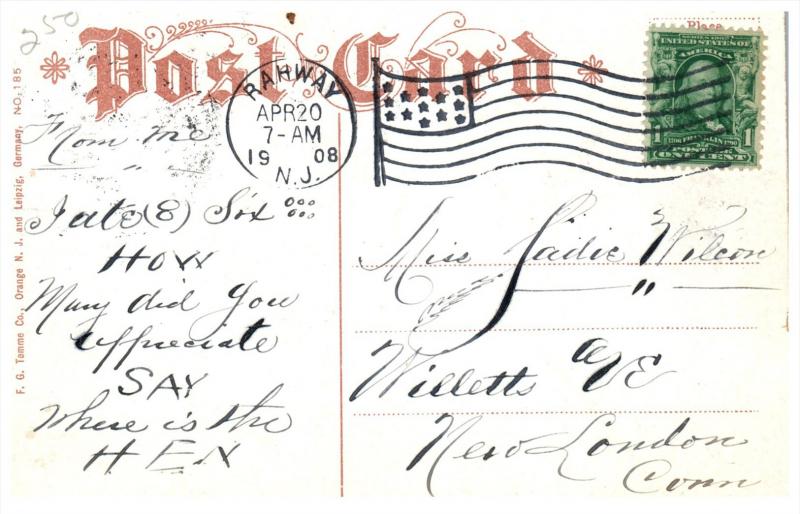 250
Post Card
RAHWAY
APR 20
7-AM
19 08
N.J.
Place
SERIES 1902
UNITED STATES OF
AMERICA
1 FRANKLIN 1
POSTAGE
ONE CENT
F. G. Temme Co., Orange N. J. and Leipzig, Germany, No. 185
From me
I ate (8) Six
HOW
Many did You
appreciate
SAY
Where is the
HEN
Miss Sadie Wilcox
"
Willetts AVE
New London
Conn